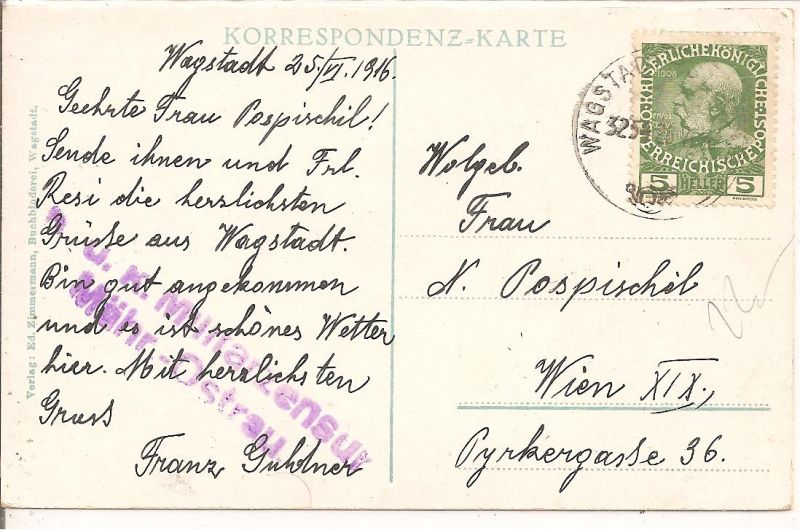 KORRESPONDENZ-KARTE
Wagstadt 25./VI. 1916.
Geehrte Frau Pospischil!
Sende ihnen und Frl.
Resi die herzlichsten
Grüße aus Wagstadt.
Bin gut angekommen
und es ist schönes Wetter
hier. Mit herzlichsten
Gruss
Franz Guldner
k. u. k. Militärzensur
Mähr.-Ostrau
Verlag: Ed. Zimmermann, Buchbinderei, Wagstadt.
WAGSTA
K.K. KAISERLICHEKÖNIGLICHE
ÖSTERREICHISCHEPOST
1908
5 HELLER 5
Wolgeb.
Frau
N. Pospischil
Wien XIX.,
Pyrkergasse 36.